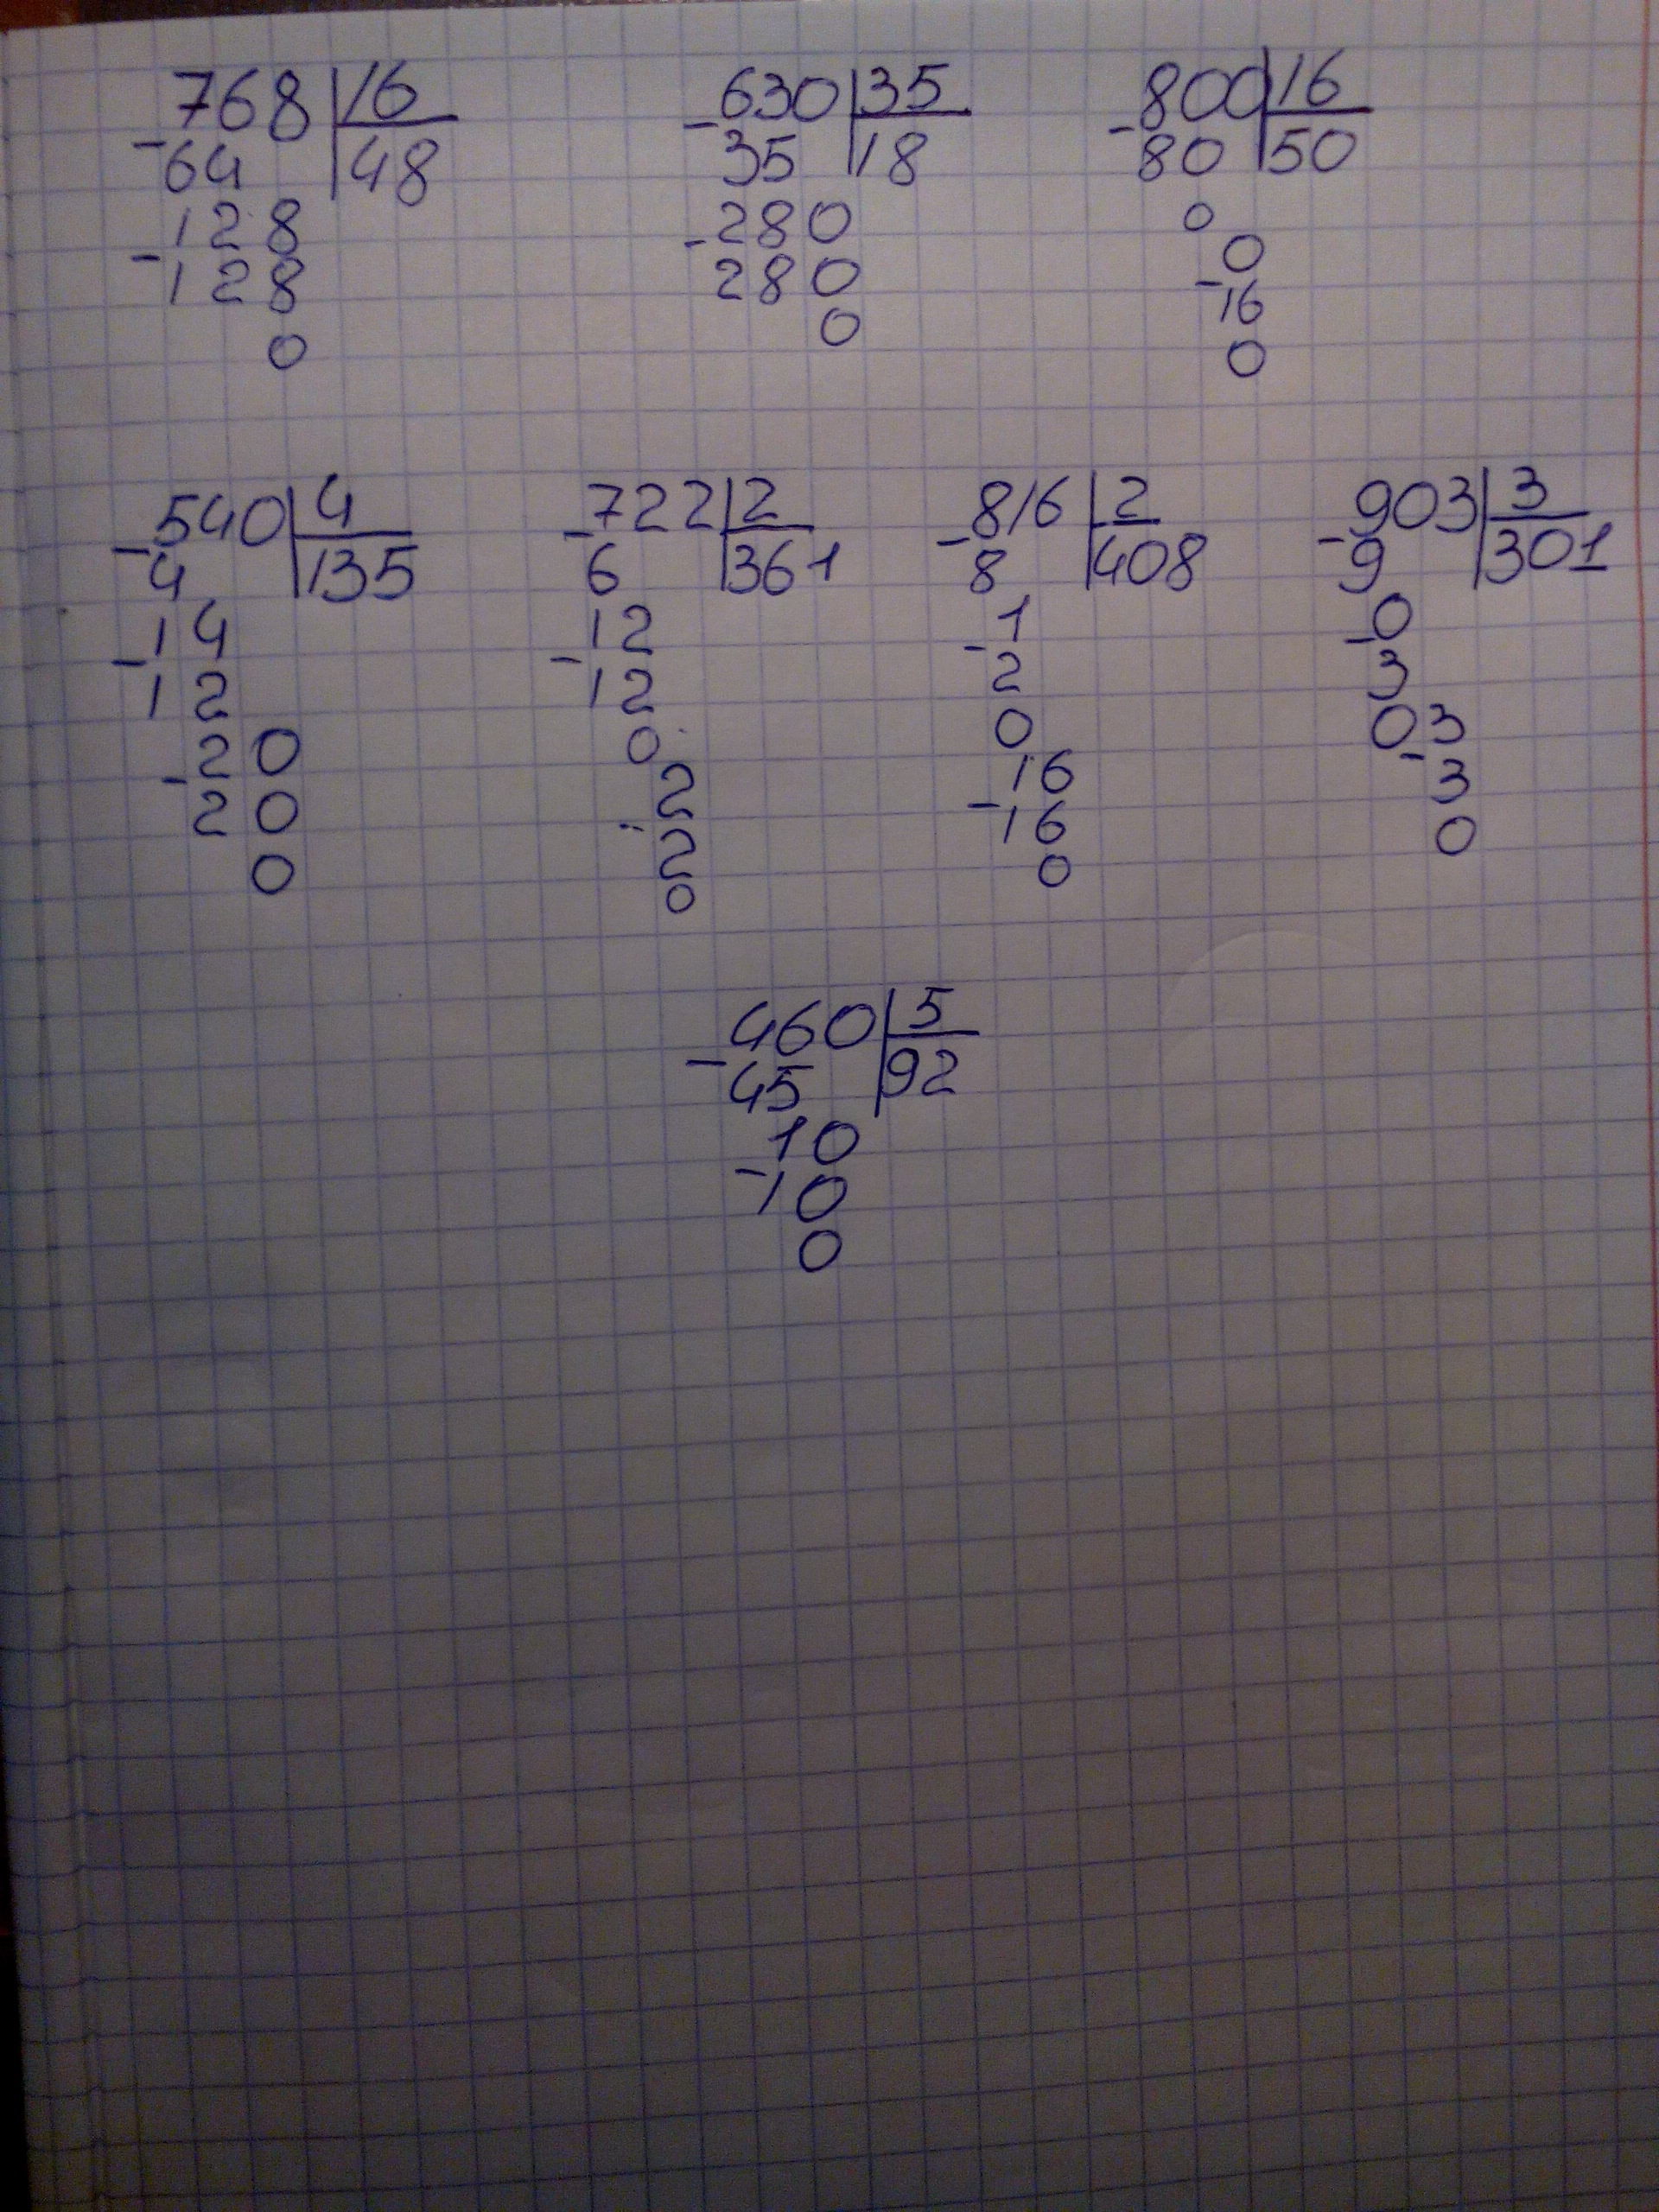 768 16 630 35 800 16
- 64 48 - 35 18 - 80 50
128 280 0
- 128 - 280 0
0 0 - 16
0
540 4 722 2 816 2 903 3
- 4 135 - 6 361 - 8 408 - 9 301
14 12 1 0
- 12 - 12 - 2 - 3
20 0 0 03
- 20 2 16 - 3
0 - 2 - 16 0
0 0
460 5
- 45 92
10
- 10
0